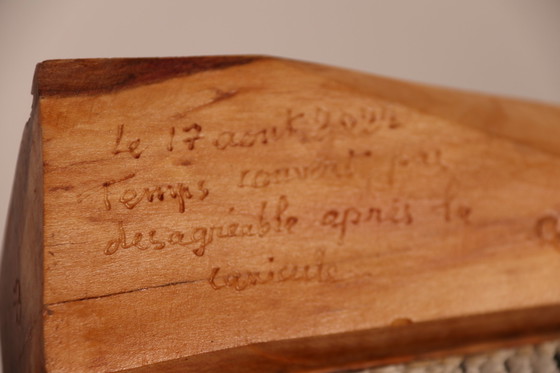 Le 17 aout 2024
Temps couvert pas
desagréable après la
canicule